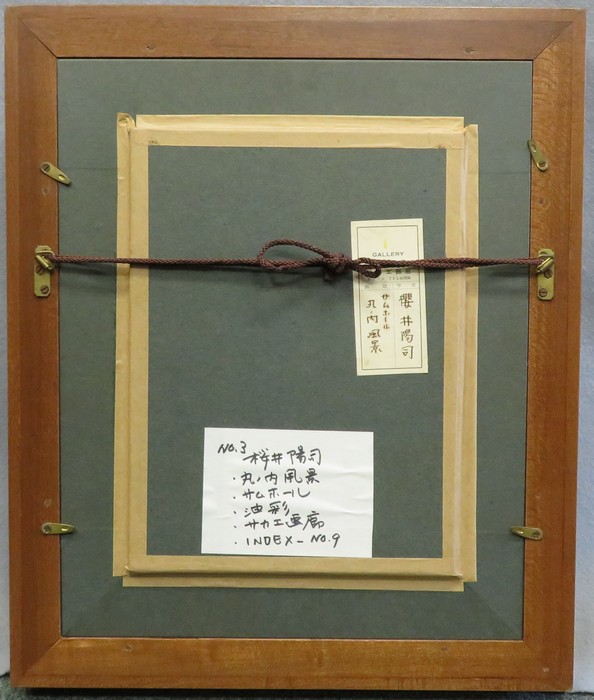 GALLERY
櫻井陽司
サムホール
丸ノ内風景
NO.3
桜井陽司
・丸ノ内風景
・サムホール
・油彩
・サカエ画廊
・INDEX-NO.9